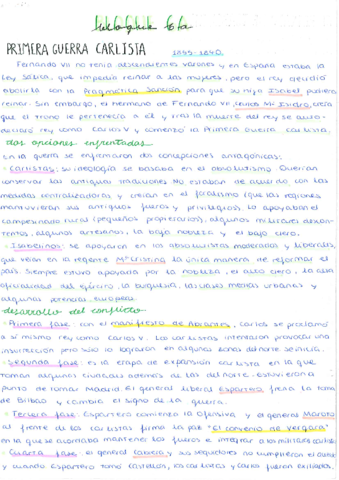 PRIMERA GUERRA CARLISTA 1833-1840
Fernando VII no tenía descendientes varones y en España estaba la
Ley Sálica, que impedía reinar a las mujeres, pero el rey decidió
abolirla con la Pragmática Sanción para que su hija Isabel pudiera
reinar. Sin embargo, el hermano de Fernando VII, Carlos Mª Isidro, creía
que el trono le pertenecía a él y tras la muerte del rey se auto-
declaró rey como Carlos V y comenzó la Primera Guerra Carlista.
dos opciones enfrentadas
En la guerra se enfrentaron dos concepciones antagónicas:
· Carlistas: su ideología se basaba en el absolutismo. Querían
conservar las antiguas tradiciones. No estaban de acuerdo con las
medidas centralizadoras y creían en el foralismo (que las regiones
mantuvieran sus antiguos fueros y privilegios). Lo apoyaban el
campesinado rural (pequeños propietarios), algunos militares descon-
tentos, algunos artesanos, la baja nobleza y el bajo clero.
· Isabelinos: se apoyaron en los absolutistas moderados y liberales,
que veían en la regente Mª Cristina la única manera de reformar el
país. Siempre estuvo apoyada por la nobleza, el alto clero, la alta
oficialidad del ejército, la burguesía, las clases medias urbanas y
algunas potencias europeas.
desarrollo del conflicto
· Primera fase: con el manifiesto de Abrantes, Carlos se proclamó
a sí mismo rey como Carlos V. Los carlistas intentaron provocar una
insurrección pero sólo lo lograron en algunas zonas del norte
· Segunda fase: es la etapa de expansión carlista en la que
toman algunas ciudades además de las del norte. Estuvieron a
punto de tomar Madrid. El general liberal Espartero frena la toma
de Bilbao y cambia el signo de la guerra.
· Tercera fase: Espartero comienza la ofensiva y el general Maroto
al frente de los carlistas firma la paz "El convenio de Vergara"
en la que se acordaba mantener los fueros e integrar a los militares carlistas
· Cuarta fase: el general Cabrera y sus seguidores no cumplieron el
y cuando Espartero tomó Castellón, los carlistas y Carlos fueron exiliados.